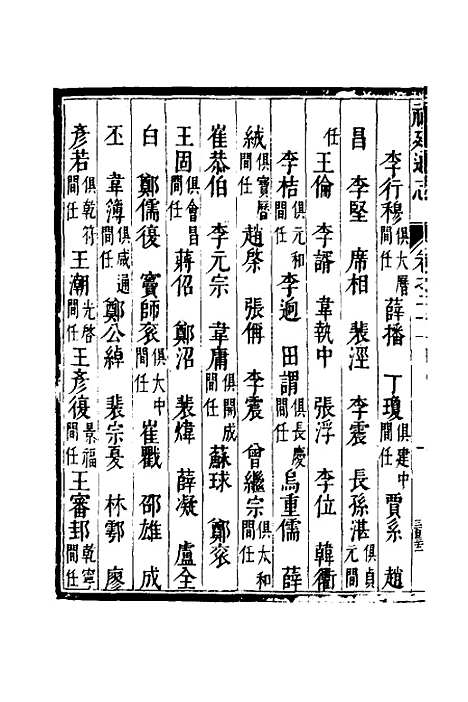 李行穆俱大曆間任 薛播 丁瓊俱建中間任 賈系 趙
昌 李堅 席相 裴涇 李震 長孫湛俱貞元間
任 王倫 李諝 韋執中 張浮 李位 韓衢
李桔俱元和間任 李逈 田謂俱長慶間任 烏重儒 薛
絨俱寶曆間任 趙棨 張偁 李震 曾繼宗俱大和間任
崔恭伯 李元宗 韋庸俱開成間任 蘇球 鄭衮
王固俱會昌間任 蔣佋 鄭沼 裴煒 薛凝 盧全
白 鄭儒復 竇師衮俱大中間任 崔戵 邵雄 成
丕 韋簿俱咸通間任 鄭公綽 裴宗憂 林鄠 廖
彥若俱乾符間任 王潮光啓間任 王彥復景福間任 王審邽乾寧間任